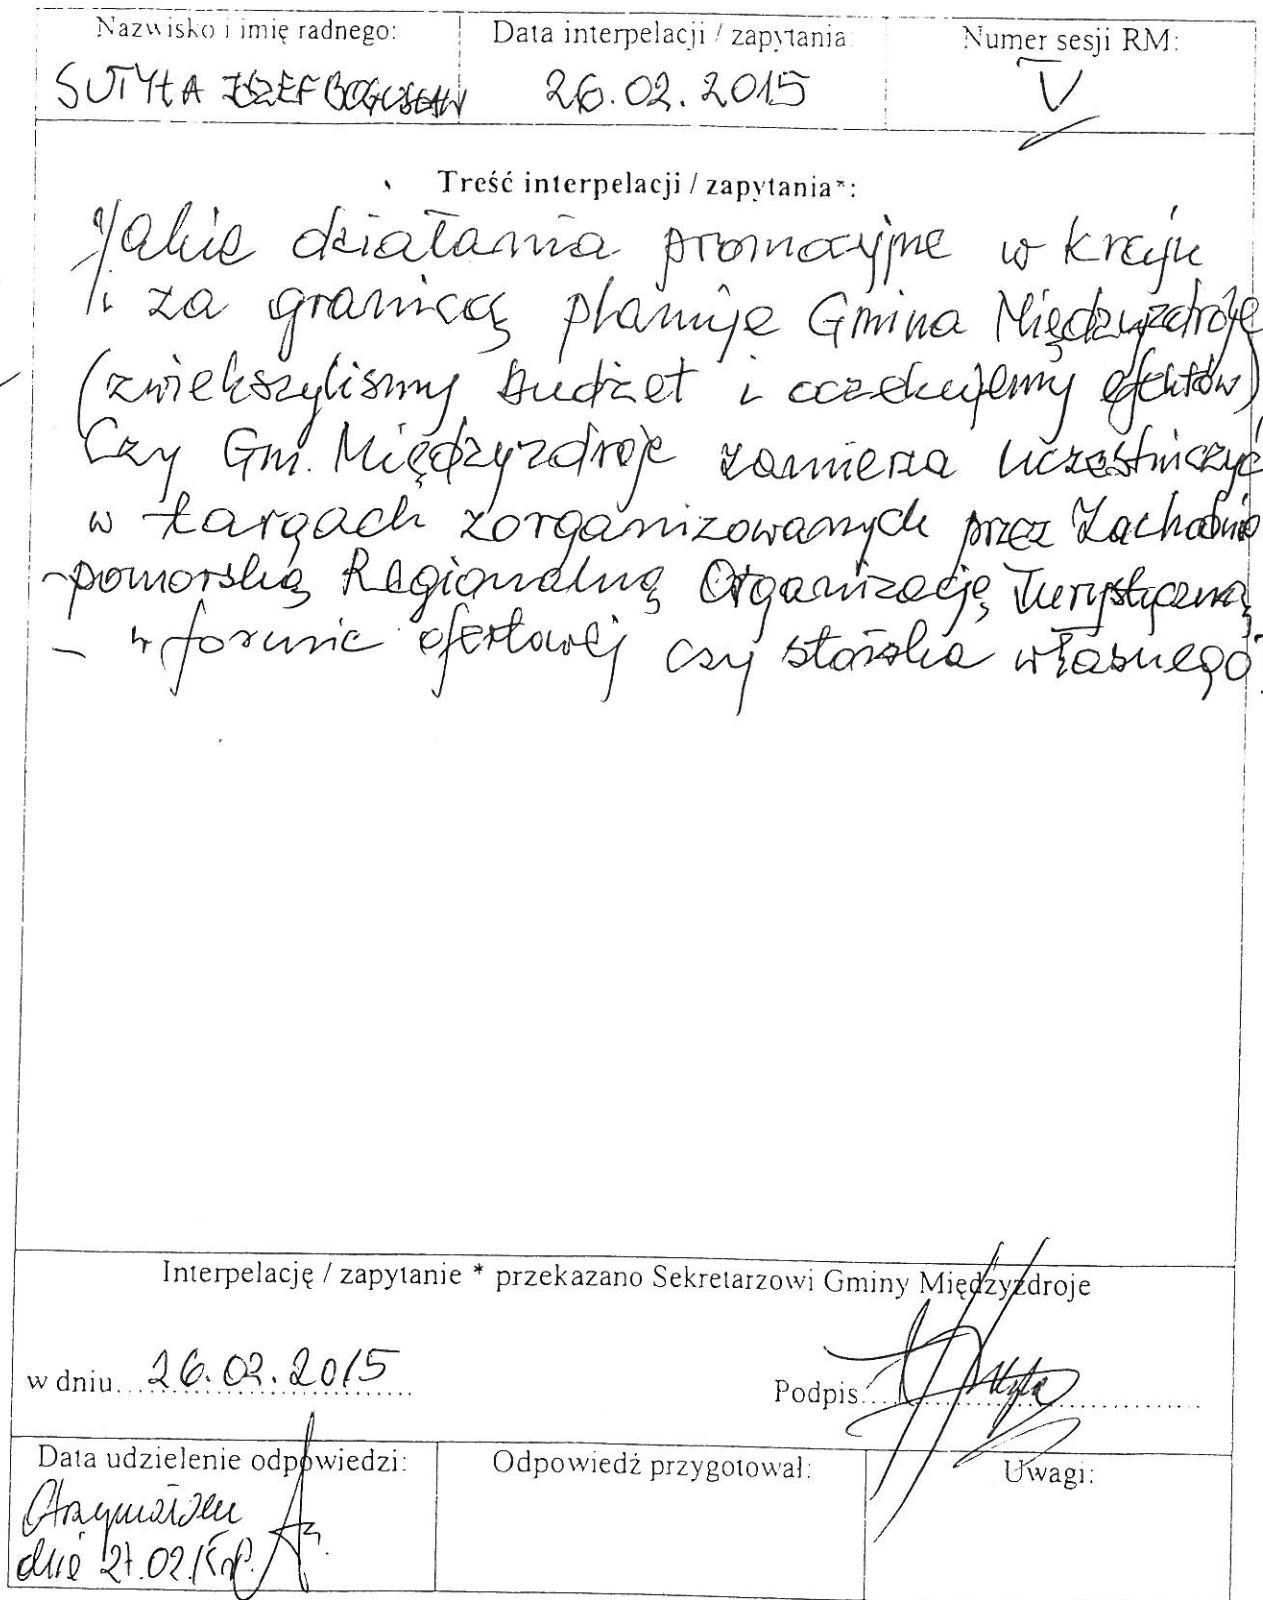 Nazwisko i imię radnego: Data interpelacji / zapytania: Numer sesji RM:
SUTYŁA JÓZEF BOGUSŁAW 26.02.2015 V
Treść interpelacji / zapytania*:
Jakie działania promocyjne w kraju
i za granicą planuje Gmina Międzyzdroje
(zwiekszylismy budżet i oczekujemy efektów)
Czy Gm. Międzyzdroje zamierza uczestniczyć
w targach zorganizowanych przez Zachodnio
-pomorską Regionalną Organizację Turystyczną
- w formie ofertowej czy stoiska własnego?
Interpelację / zapytanie * przekazano Sekretarzowi Gminy Międzyzdroje
w dniu 26.02.2015 Podpis
Data udzielenie odpowiedzi: Odpowiedź przygotował: Uwagi:
Otrzymałem
dnia 27.02.15r.